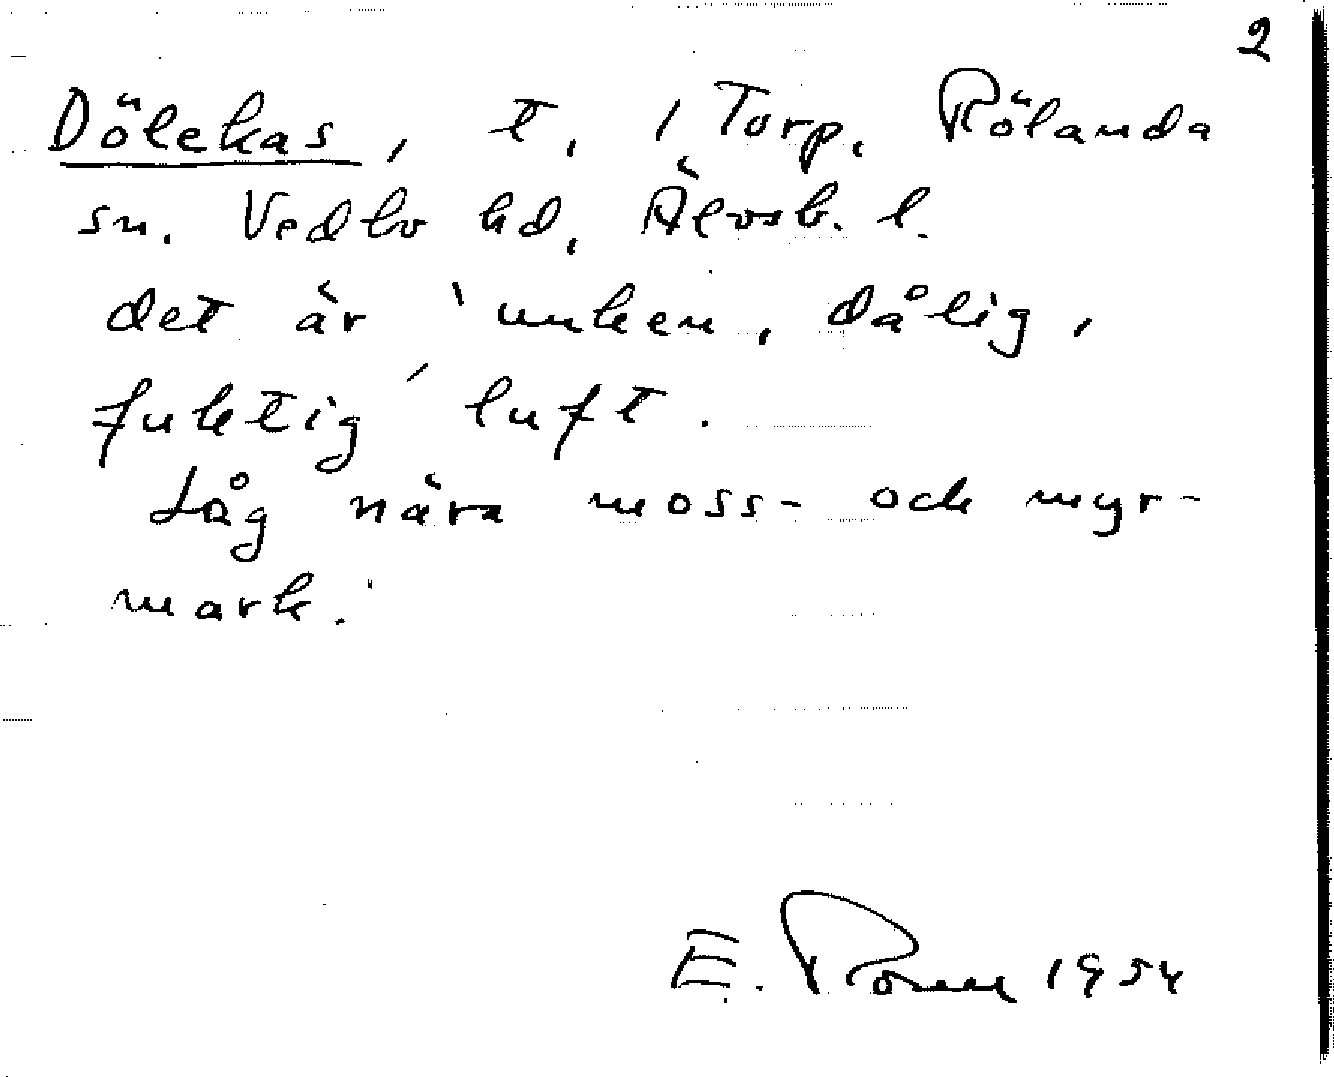 2
Dölekas, t, 1 Torp. Rölanda
sn. Vedbo hd, Älvsb. l.
det är 'unken, dålig,
fuktig' luft.
Låg nära moss- och myr-
mark.
E. 1954